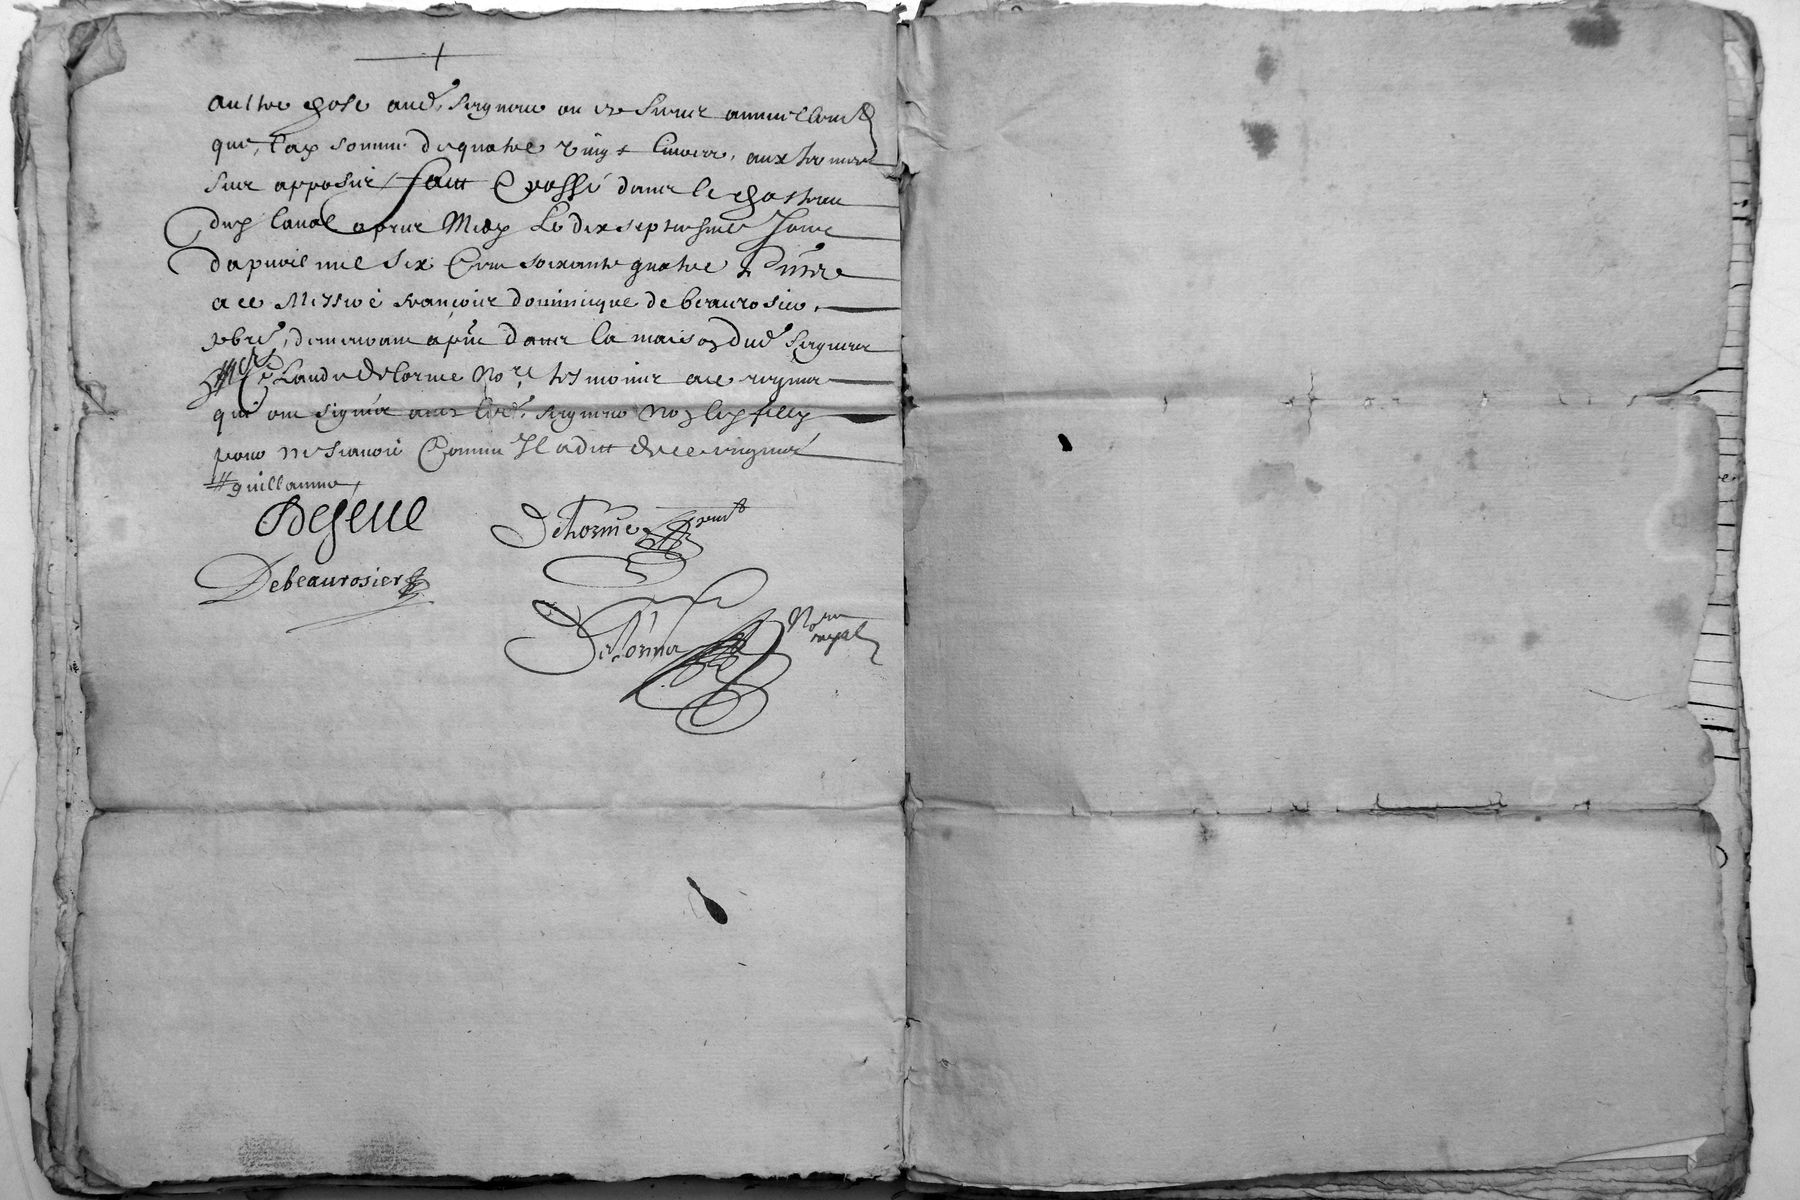 aultre chose aud. seigneur
que lad somme de quatre vingt livres, aux termes
sus apposés, faict & passé dans le chasteau
dud laval apres Midy Le dix septiesme Jour
dapvril mil six Cens soixante quatre
a ce Messire françois dominicque de beaurosier,
pbre, demeurant dans la maison dud. Seigneur
& Claude delorme Nore tesmoings
qui ont signés avec led. seigneur Non led
pour ne scavoir Comme Il a dict de ce requis
guillaume
DeSeve
Delorme
Debeaurosier
Delorme
Nore
royal